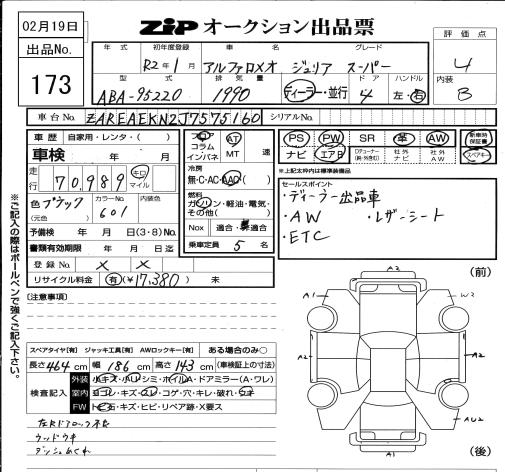 02月19日
ZIP オークション出品票
評価点
出品No.
173
年式 初年度登録 車名 グレード
R2年1月 アルファロメオ ジュリア スーパー
4
型式 排気量 ドア ハンドル
内装
ABA-95220 1990 ディーラー・並行 4 左・右
B
車台No. ZAREAEKN2J7575160 シリアルNo.
車歴 自家用・レンタ・( )
車検 年 月
走行 70,989 キロ マイル
色 ブラック カラーNo. 601 内装色
(元色)
予備検 年 月 日(3・8)Mo.
書類有効期限 年 月 日迄
登録No. × ×
リサイクル料金 有(¥17,380) 未
フロア
コラム
インパネ
AT
MT
速
冷房
無・C・AC・AAC
燃料
ガソリン・軽油・電気・
その他( )
Nox 適合・非適合
乗車定員 5 名
PS PW SR 革 AW 新車時保証書
ナビ エアB 社外ナビ 社外AW スペアキー
※上記太枠内は標準装備品
セールスポイント
・ディーラー出品車
・AW ・レザーシート
・ETC
※ご記入の際はボールペンで強くご記入下さい。
[注意事項]
スペアタイヤ[有] ジャッキ工具[有] AWロックキー[有] ある場合のみ○
長さ464cm 幅186cm 高さ143cm (車検証上の寸法)
検査記入
外装 小キズ・小U シミ・ホイルA・ドアミラー(A・ワレ)
室内 ヨゴレ・キズ・スレ・コゲ・穴・キレ・破れ・ウキ
FW トビ石・キズ・ヒビ・リペア跡・X要ス
ウッドウキ
ダッシュめくれ
(前)
A2
A1
W2
A2
A2
A1
AU2
A1
(後)